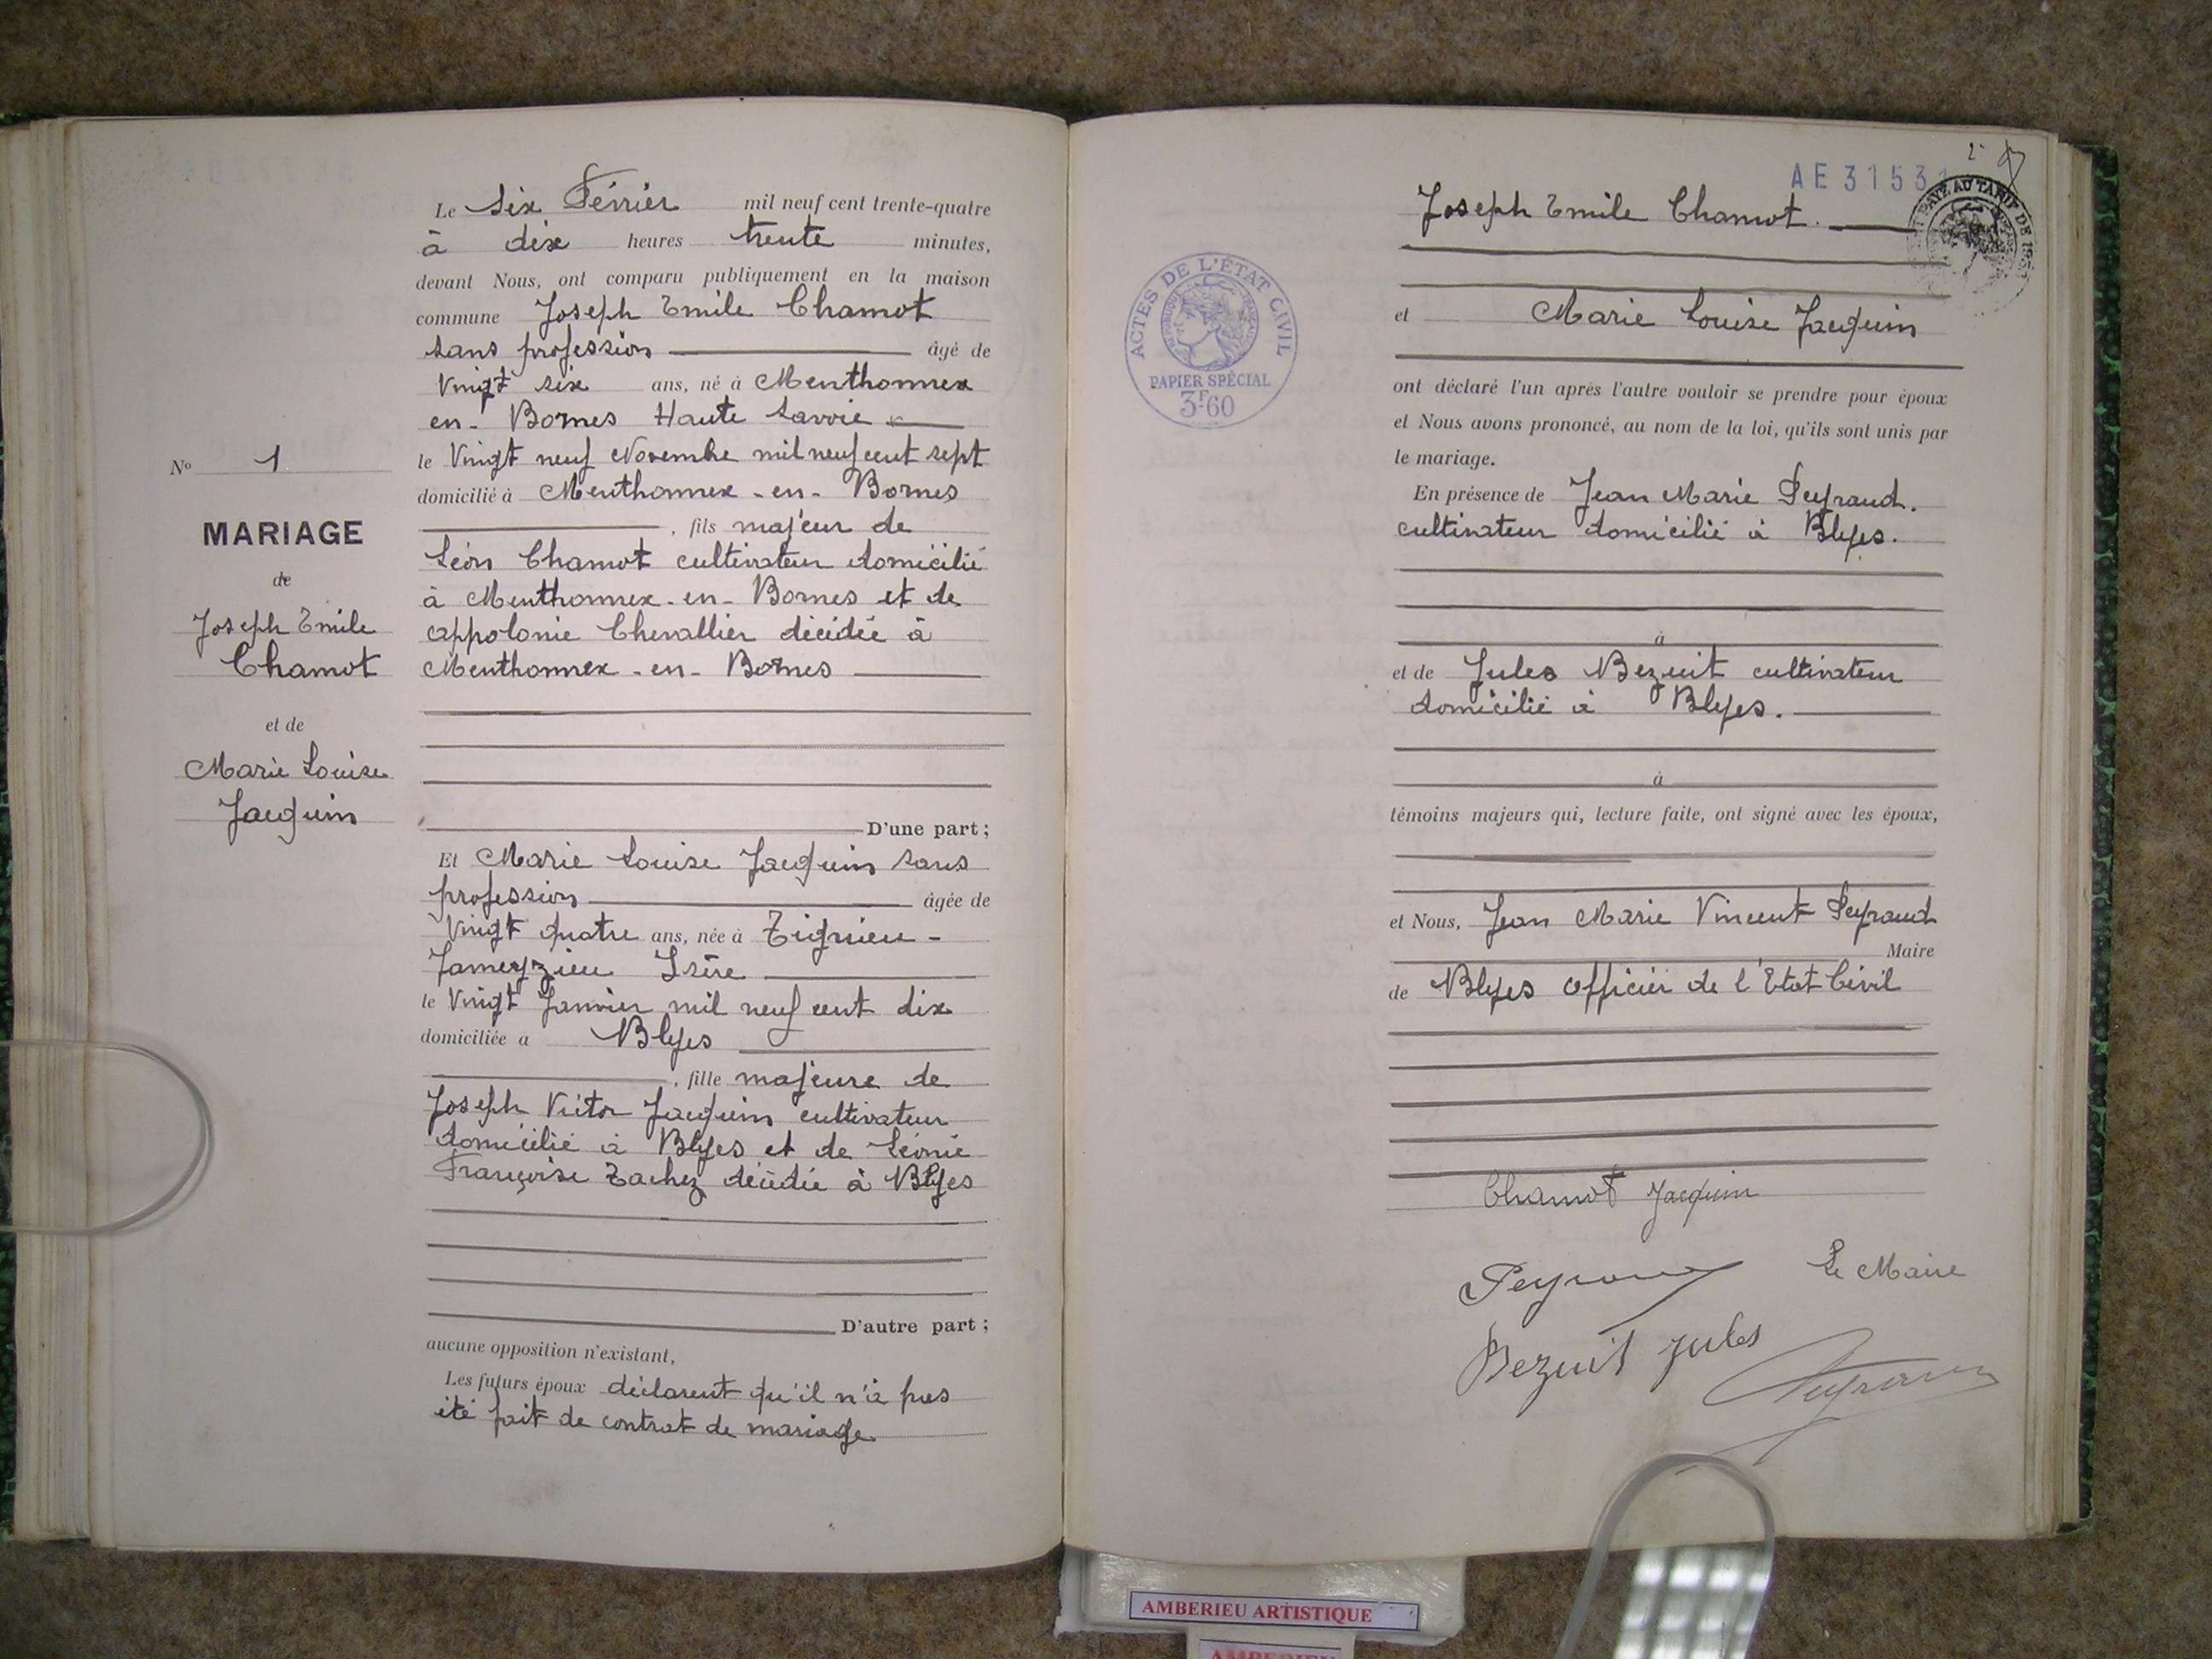 Le six Février mil neuf cent trente-quatre
à dix heures trente minutes,
devant Nous, ont comparu publiquement en la maison
commune Joseph Emile Chamot
sans profession âgé de
Vingt six ans, né à Menthonnex
en-Bornes Haute Savoie
le Vingt neuf Novembre mil neuf cent sept
domicilié à Menthonnex-en-Bornes
, fils majeur de
Léon Chamot cultivateur domicilié
à Menthonnex-en-Bornes et de
Appolonie Chevallier décédée à
Menthonnex-en-Bornes
D'une part;
Et Marie Louise Jacquin sans
profession âgée de
Vingt quatre ans, née à Tignieu-
Jameyzieu Isère
le Vingt Janvier mil neuf cent dix
domiciliée à Blyes
, fille majeure de
Joseph Victor Jacquin cultivateur
domicilié à Blyes et de Léonie
Françoise Tachez décédée à Blyes
D'autre part;
aucune opposition n'existant,
Les futurs époux déclarent qu'il n'a pas
été fait de contrat de mariage
No 1
MARIAGE
de
Joseph Emile
Chamot
et de
Marie Louise
Jacquin
AE 3153
ACTES DE L'ÉTAT CIVIL
PAPIER SPÉCIAL
3F60
PAYÉ AU TARIF DE
Joseph Emile Chamot.
et Marie Louise Jacquin
ont déclaré l'un après l'autre vouloir se prendre pour époux
et Nous avons prononcé, au nom de la loi, qu'ils sont unis par
le mariage.
En présence de Jean Marie Peyraud.
cultivateur domicilié à Blyes.
à
et de Jules Bezuit cultivateur
domicilié à Blyes.
à
témoins majeurs qui, lecture faite, ont signé avec les époux,
et Nous, Jean Marie Vincent Peyraud
Maire
de Blyes Officier de l'Etat Civil
Chamot Jacquin
Peyraud Le Maire
Bezuit Jules
Peyraud
AMBERIEU ARTISTIQUE
AMBERIEU